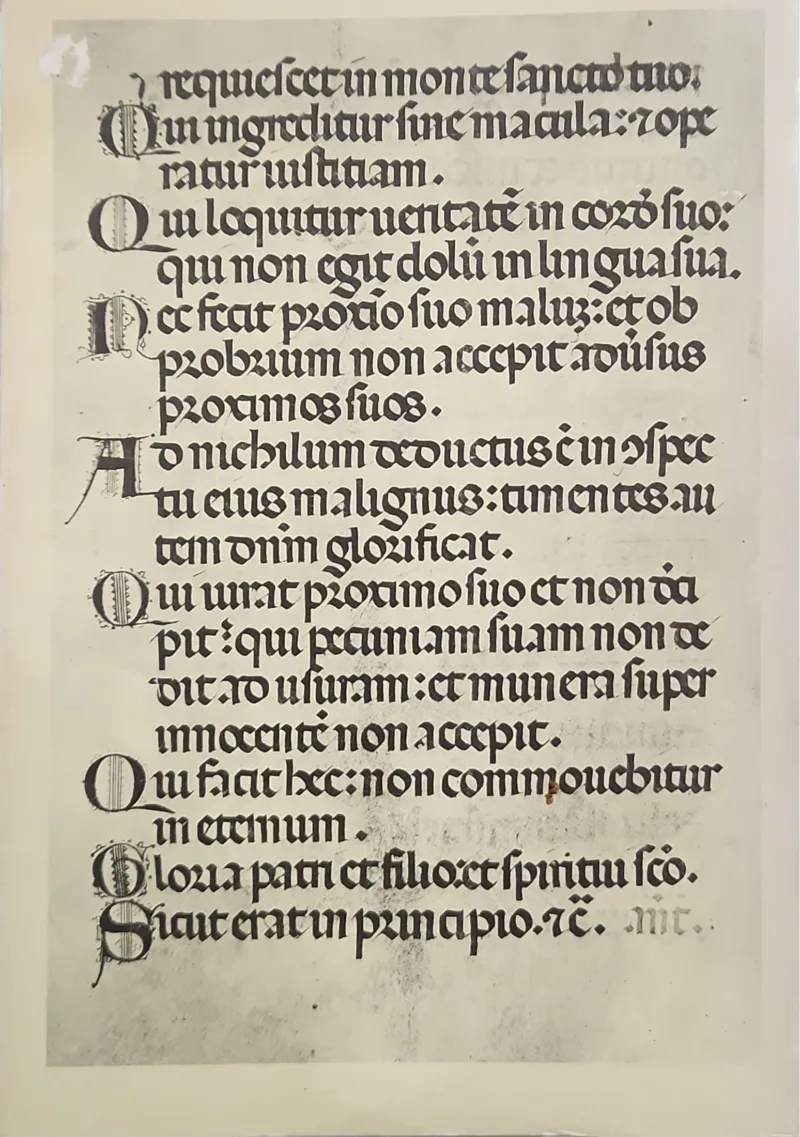 requiescet in monte sancto tuo.
Qui ingreditur sine macula: ⁊ ope
ratur iustitiam.
Qui loquitur ueritatē in cordō suo:
qui non egit dolū in lingua sua.
Nec fecit proxīo suo maluʒ: et ob
probrium non accepit adūsus
proximos suos.
Ad nichilum deductus ē in ꝯspec
tu eius malignus: timentes au
tem dnīm glorificat.
Qui iurat proximo suo et non dēci
pit: qui pecuniam suam non de
dit ad usuram: et munera super
innocentē non accepit.
Qui facit hec: non commouebitur
in eternum.
Gloria patri et filio: et spiritui scō.
Sicut erat in principio. ⁊c̄.